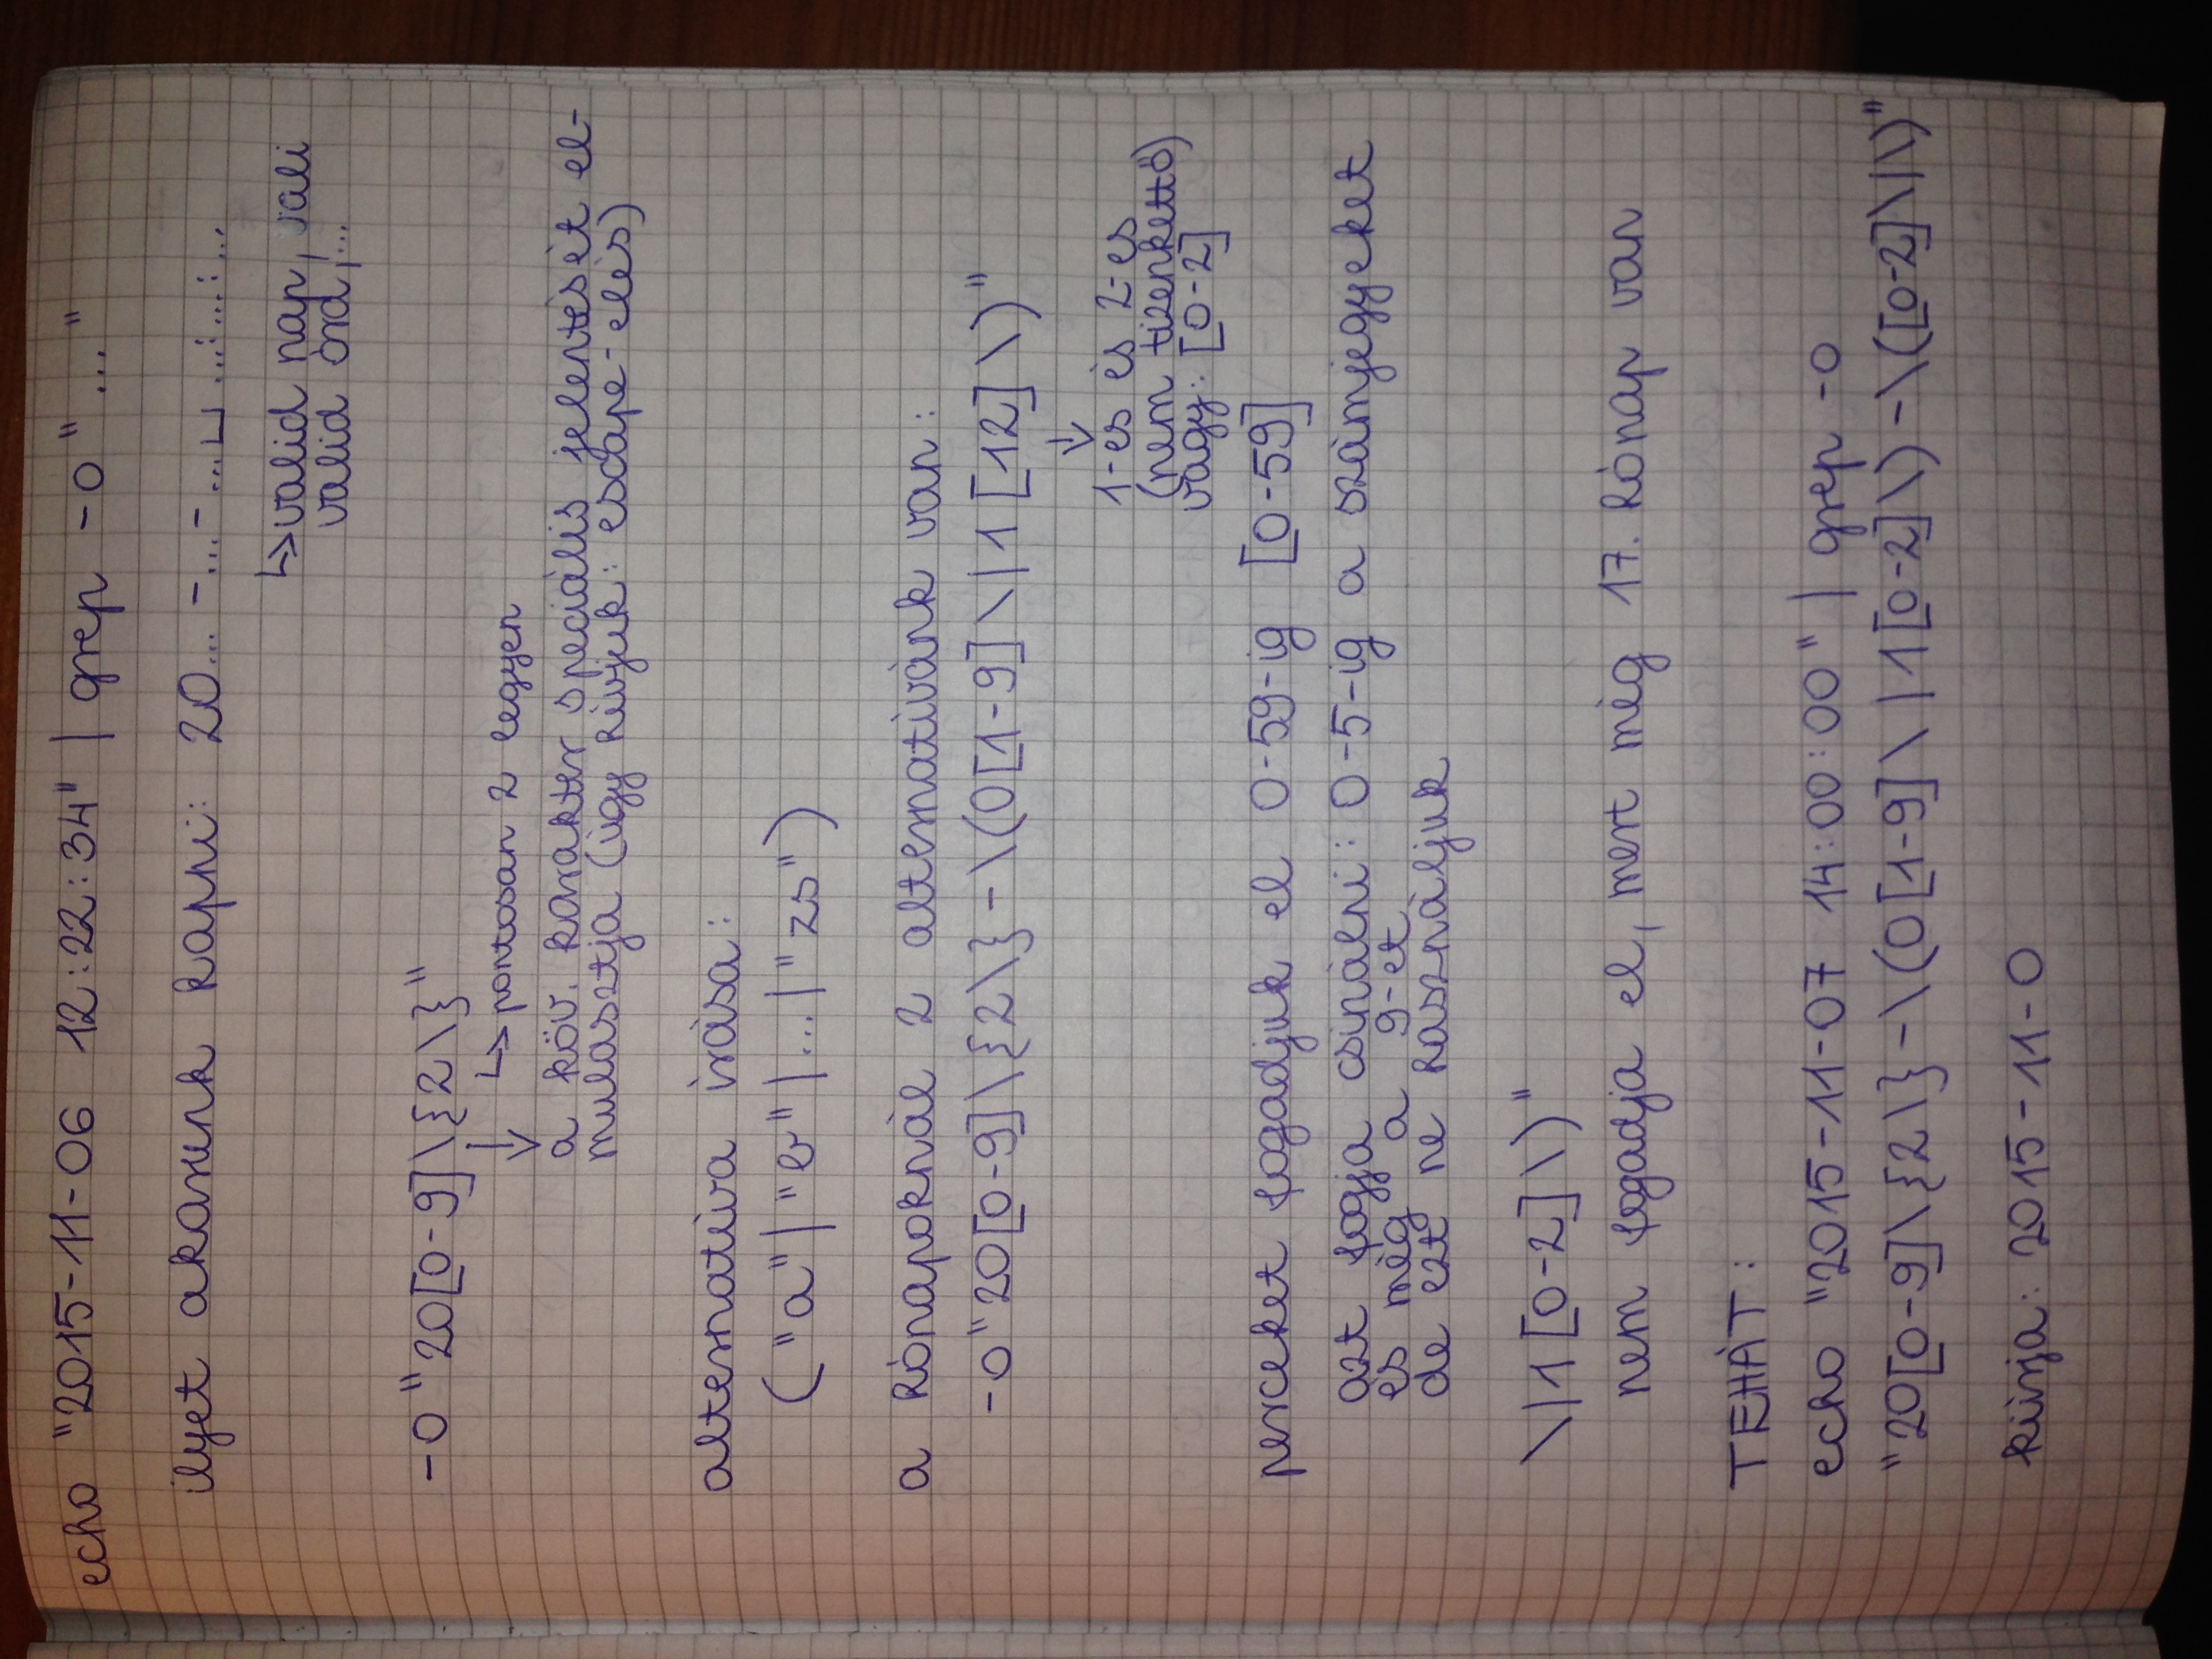 echo "2015-11-06 12:22:34" | grep -o "..."
ilyet akarunk kapni: 20... -...-...␣ ...:...:...
↳ valid nap, vali
valid óra,...
-o "20[0-9]\{2\}"
↳ pontosan 2 legyen
a köv. karakter speciális jelentését el-
mulasztja (úgy hívjuk: escape-elés)
alternatíva írása:
("a"|"b"|...|"zs")
a hónapoknál 2 alternatívánk van:
-o "20[0-9]\{2\}-\(0[1-9]\|1[12]\)"
1-es és 2-es
(nem tizenkettő)
vagy: [0-2]
perceket fogadjuk el 0-59-ig [0-59]
azt fogja csinálni: 0-5-ig a számjegyeket
és még a 9-et
de ezt ne használjuk
\|1[0-2]\)"
nem fogadja el, mert még 17. hónap van
TEHÁT:
echo "2015-11-07 14:00:00" | grep -o
"20[0-9]\{2\}-\(0[1-9]\|1[0-2]\)-\([0-2]\|\)"
kiírja: 2015-11-0